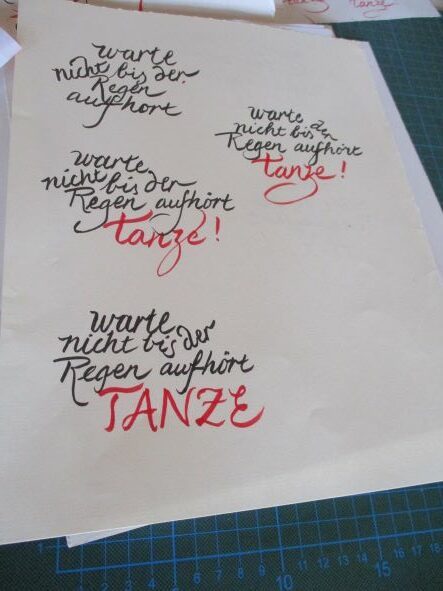 tanze
warte
nicht bis der
Regen
aufhört
warte
nicht bis der
Regen aufhört
tanze!
warte
nicht bis der
Regen aufhört
tanze!
warte
nicht bis der
Regen aufhört
TANZE
1
2
3
4
5
6
7
8
9
10
11
12
13
14
15
16
17